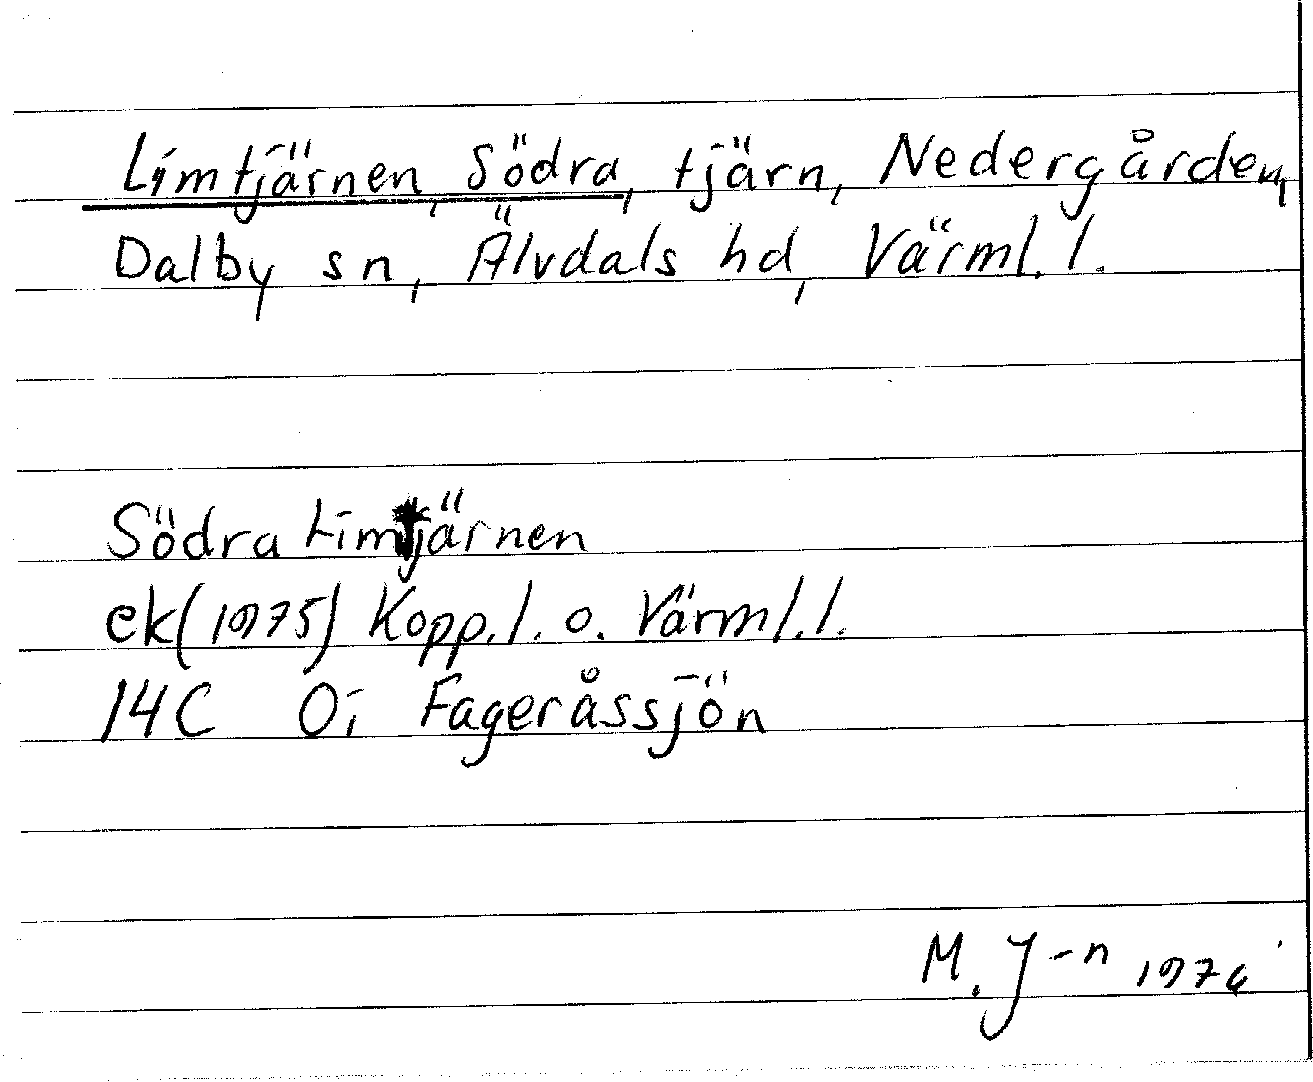 Limtjärnen, Södra, tjärn, Nedergården,
Dalby sn, Älvdals hd, Värml. l.
Södra Limtjärnen
ek (1975) Kopp. l. o. Värml. l.
14C 0i Fageråssjön
M. J-n